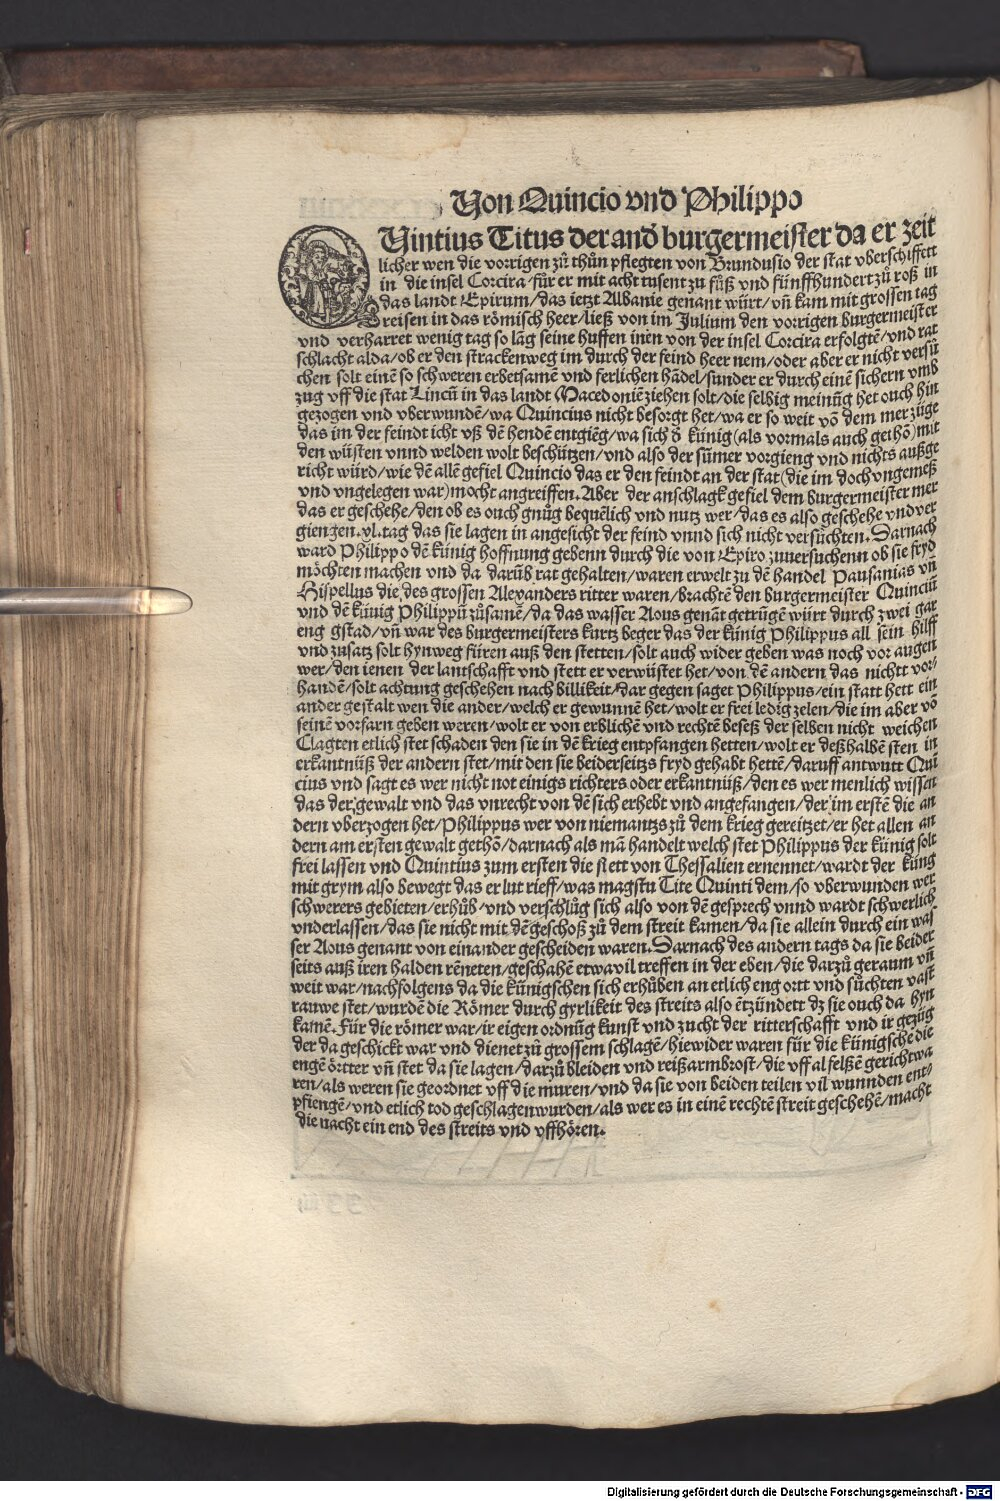 Von Quincio vnd Philippo
QUintius Titus der and burgermeister da er zeit
licher wen die vorrigen zů thůn pflegten von Brundusio der stat vberschiffett
in die insel Corcira fůr er mit acht tusent zu fůß vnd fünffhundert zů roß in
das landt Epirum/das ietzt Albanie genant würt/vñ kam mit grossen tag
reisen in das römisch heer/ließ von im Julium den vorrigen burgermeister
vnd verharret wenig tag so lãg seine huffen inen von der insel Corcira erfolgtẽ/vnd rat
schlacht alda/ob er den strackenweg im durch der feind heer nem/oder aber er nicht versů
chen solt einẽ so schweren erbetsamẽ vnd ferlichen hãdel/sunder er durch einẽ sichern vmb
zug vff die stat Lincũ in das landt Macedoniẽ ziehen solt/die selbig meinũg het ouch hin
gezogen vnd vberwundẽ/wa Quincius nicht besorgt het/wa er so weit võ dem mer züge
das im der feindt icht vß dẽ hendẽ entgiẽg/wa sich d̃ künig(als vormals auch gethõ)mit
den wüsten vnnd welden wolt beschützen/vnd also der sũmer vorgieng vnd nichts außge
richt würd/wie dẽ allẽ gefiel Quincio das er den feindt an der stat(die im doch vngemeß
vnd vngelegen war)mocht angreiffen. Aber der anschlagk gefiel dem burgermeister mer
das er geschehe/den ob es ouch gnůg bequẽlich vnd nutz wer/das es also geschehe vnd ver
giengen .xl. tag das sie lagen in angesicht der feind vnnd sich nicht versůchten. Darnach
ward Philippo dẽ künig hoffnung gebenn durch die von Epiro zuuersuchenn ob sie fryd
möchten machen vnd da darũb rat gehalten/waren erwelt zu dẽ handel Pausanias vñ
Hispellus die des grossen Alexanders ritter waren/brachtẽ den burgermeister Quinciũ
vnd dẽ künig Philippũ zůsamẽ/da das wasser Aous genãt getrũgẽ würt durch zwei gar
eng gstad/vñ war des burgermeisters kurtz beger das der künig Philippus all sein hilff
vnd zusatz solt hynweg füren auß den stetten/solt auch wider geben was noch vor augen
wer/den ienen der lantschafft vnd stett er verwüstet het/von dẽ andern das nichtt vor/
handẽ/solt achtung geschehen nach billikeit/dar gegen saget Philippus/ein statt hett ein
ander gestalt wen die ander/welch er gewunnẽ het/wolt er frei ledig zelen/die im aber võ
seinẽ vorfarn geben weren/wolt er von erblichẽ vnd rechtẽ beseß der selben nicht weichen
Clagten etlich stet schaden den sie in dẽ krieg entpfangen hetten/wolt er deßhalbẽ sten in
erkantnüß der andern stet/mit den sie beiderseitzs fryd gehabt hettẽ/daruff antwutt Quin
cius vnd sagt es wer nicht not einigs richters oder erkantnüß/den es wer menlich wissen
das der gewalt vnd das vnrecht von dẽ sich erhebt vnd angefangen/der im erstẽ die an
dern vberzogen het/Philippus wer von niemantzs zů dem krieg gereitzet/er het allen an
dern am ersten gewalt gethõ/darnach als mã handelt welch stet Philippus der künig solt
frei lassen vnd Quintius zum ersten die stett von Thessalien ernennet/wardt der küng
mit grym also bewegt das er lut rieff/was magstu Tite Quinti dem/so vberwunden wer
schwerers gebieten/erhůb vnd verschlůg sich also von dẽ gesprech vnnd wardt schwerlich
vnderlassen/das sie nicht mit dẽ geschoß zů dem streit kamen/da sie allein durch ein was
ser Aous genant von einander gescheiden waren. Darnach des andern tags da sie beider
seits auß iren halden rẽneten/geschahẽ etwa vil treffen in der eben/die darzů geraum vñ
weit war/nachfolgens da die künigschen sich erhůben an etlich eng ortt vnd sůchten vast
rauwe stet/wurdẽ die Römer durch gyrlikeit des streits also ẽtzündett dz sie ouch da hyn
kamẽ. Für die römer war/ir eigen ordnũg kunst vnd zucht der ritterschafft vnd ir gezüg
der da geschickt war vnd dienet zů grossem schlagẽ/hiewider waren für die künigsche die
engẽ örtter vñ stet da sie lagen/darzů bleiden vnd reißarmbrost/die vff al felßẽ gericht wa
ren/als weren sie geordnet vff die muren/vnd da sie von beiden teilen vil wunnden ent/
pfiengẽ/vnd etlich tod geschlagen wurden/als wer es in einẽ rechtẽ streit geschehẽ/macht
die nacht ein end des streits vnd vffhören.
Digitalisierung gefördert durch die Deutsche Forschungsgemeinschaft - DFG